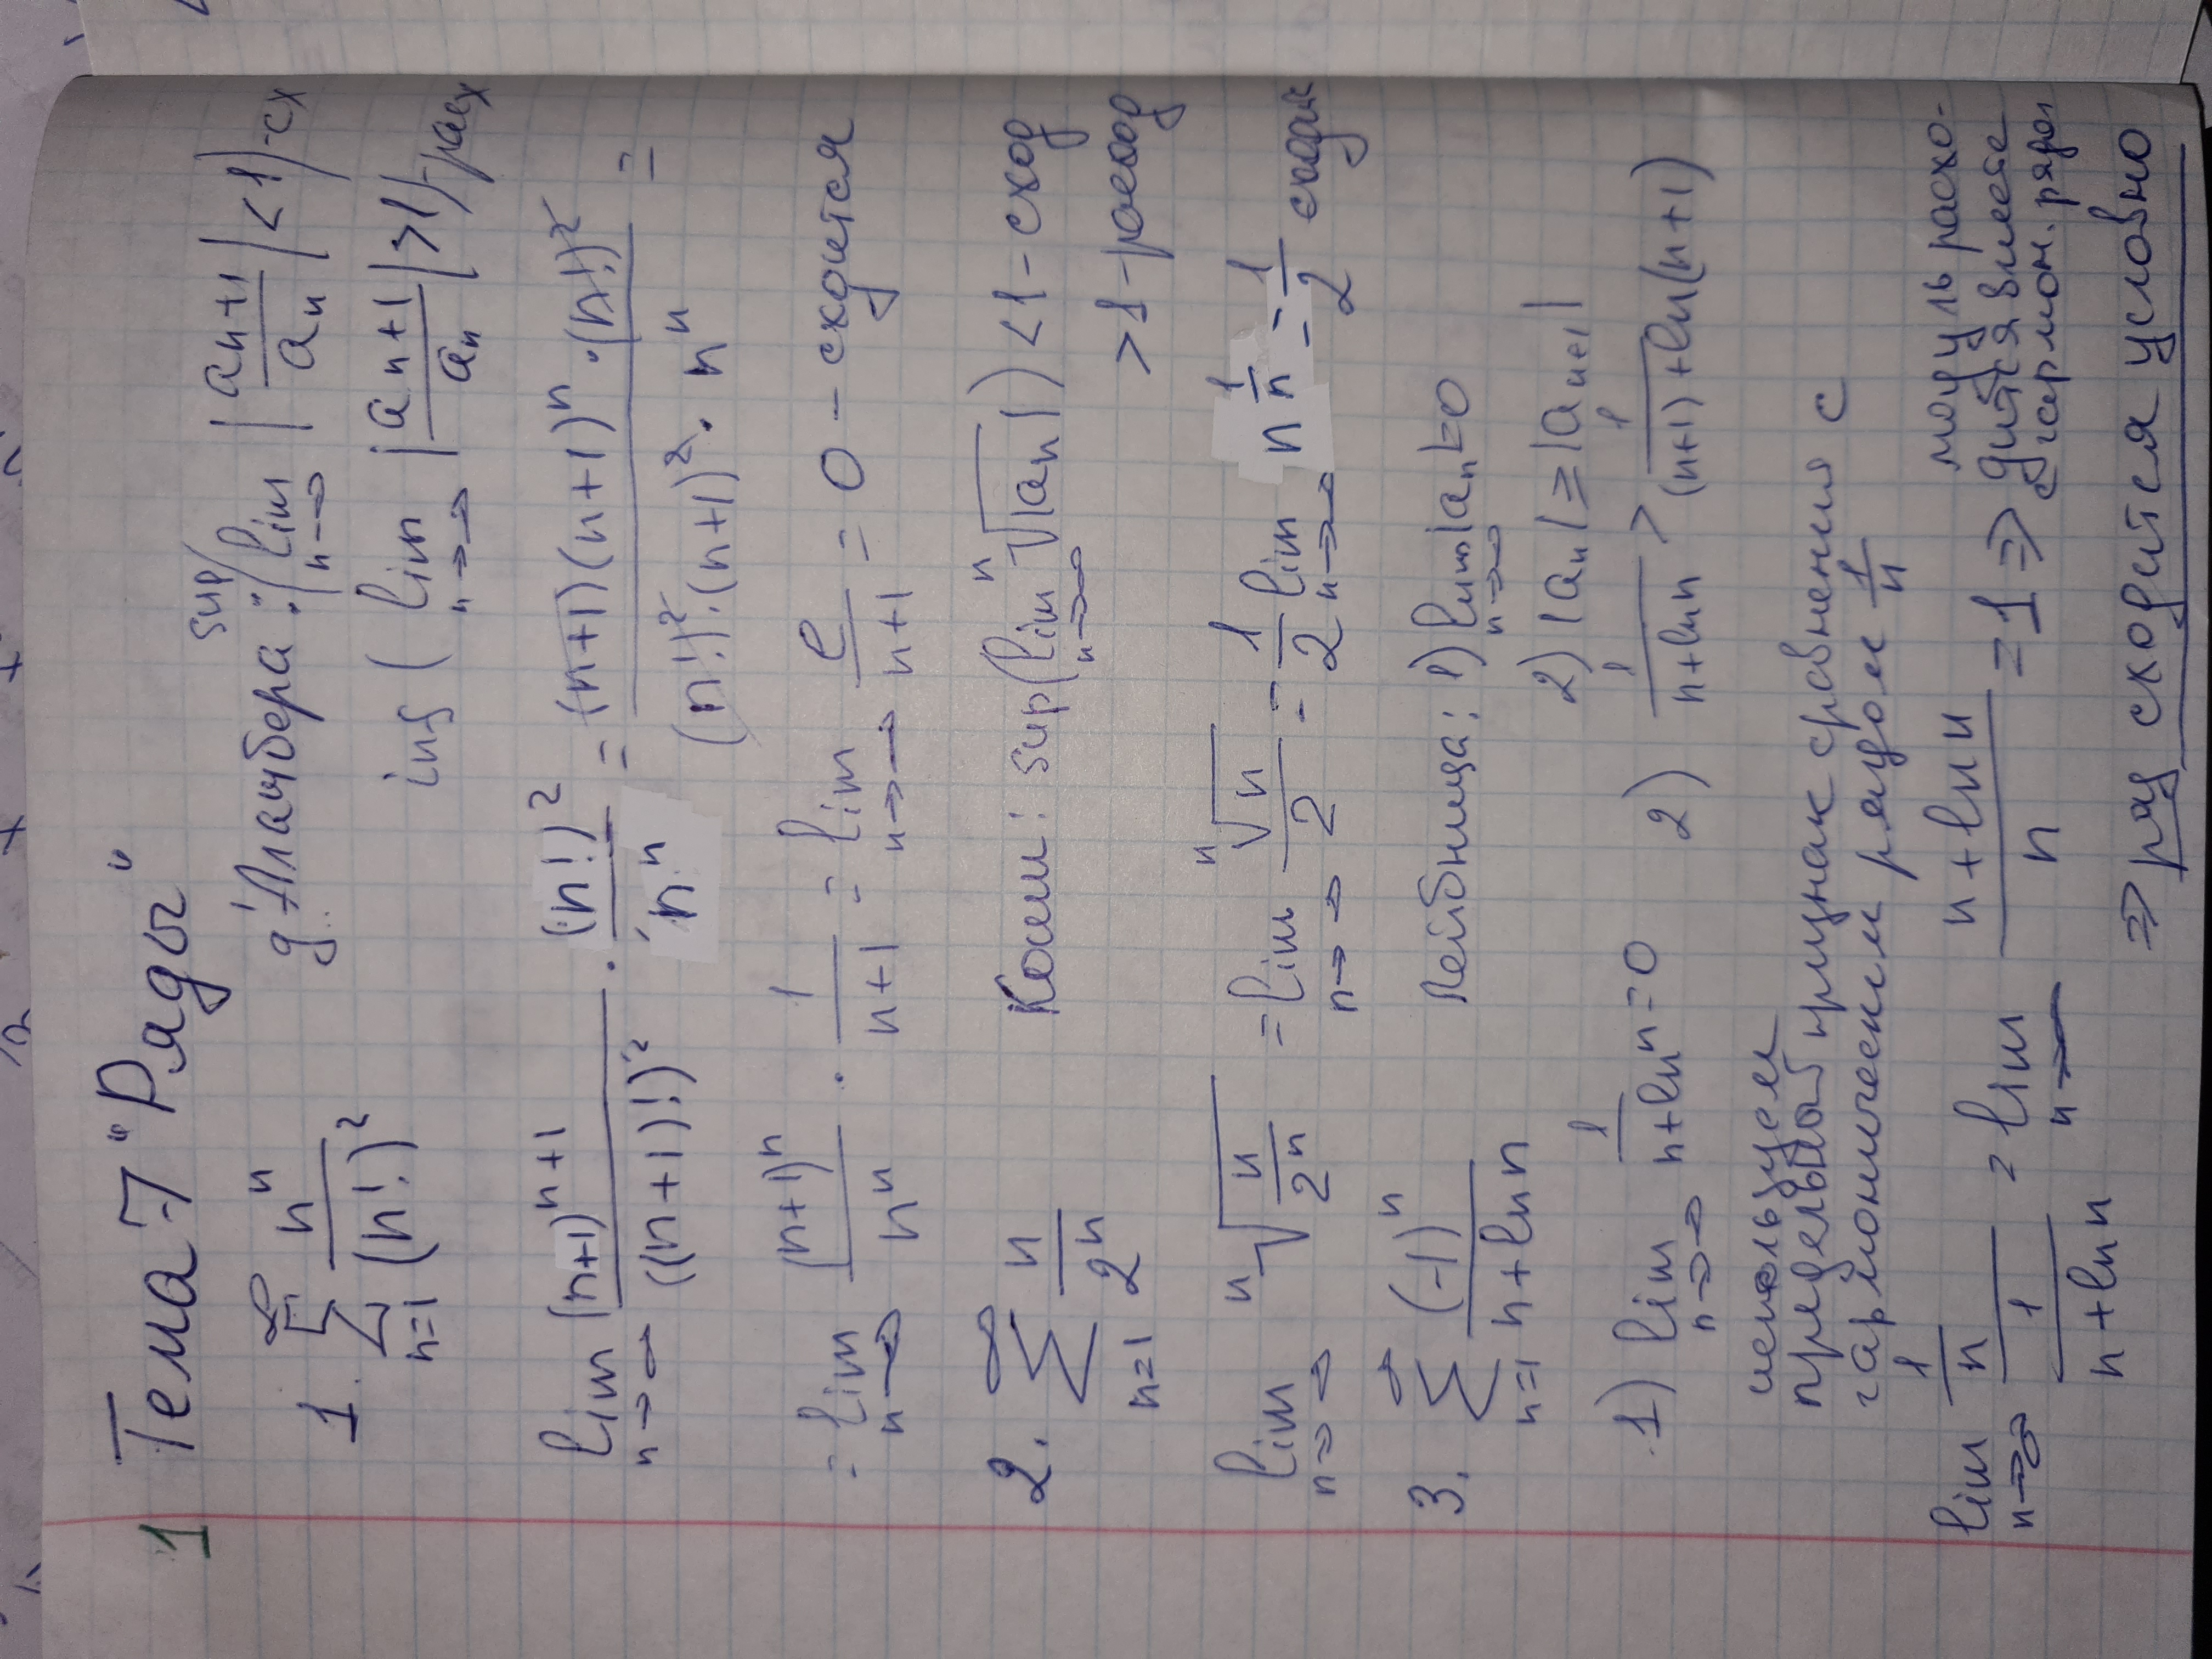 1 Тема 7 "Ряды"
1. ∑_{n=1}^{∞} n^n / (n!)^2
д'Аламбера: sup( lim_{n→∞} |a_{n+1} / a_n| < 1) - сх
inf ( lim_{n→∞} |a_{n+1} / a_n| > 1) - расх
lim_{n→∞} (n+1)^{n+1} / ((n+1)!)^2 · (n!)^2 / n^n = (n+1)(n+1)^n · (n!)^2 / (n!)^2 · (n+1)^2 · n^n =
= lim_{n→∞} (n+1)^n / n^n · 1 / n+1 = lim_{n→∞} e / n+1 = 0 - сходится
2. ∑_{n=1}^{∞} n / 2^n
Коши: sup( lim_{n→∞} ⁿ√|a_n| ) < 1 - сход
> 1 - расход
lim_{n→∞} ⁿ√(n / 2^n) = lim_{n→∞} ⁿ√n / 2 = 1/2 lim_{n→∞} n^{1/n} = 1/2 сходитс
3. ∑_{n=1}^{∞} (-1)^n / n + ln n
Лейбница: 1) lim_{n→∞} |a_n| = 0
2) |a_n| ≥ |a_{n+1}|
1) lim_{n→∞} 1 / n + ln n = 0
2) 1 / n + ln n > 1 / (n+1) + ln(n+1)
используем
предельный признак сравнения с
гармоническим рядом 1/n
lim_{n→∞} (1/n) / (1 / n + ln n) = lim_{n→∞} n + ln n / n = 1 ⇒ модуль расхо-
дится вместе
с гармон. рядом
⇒ ряд сходится условно